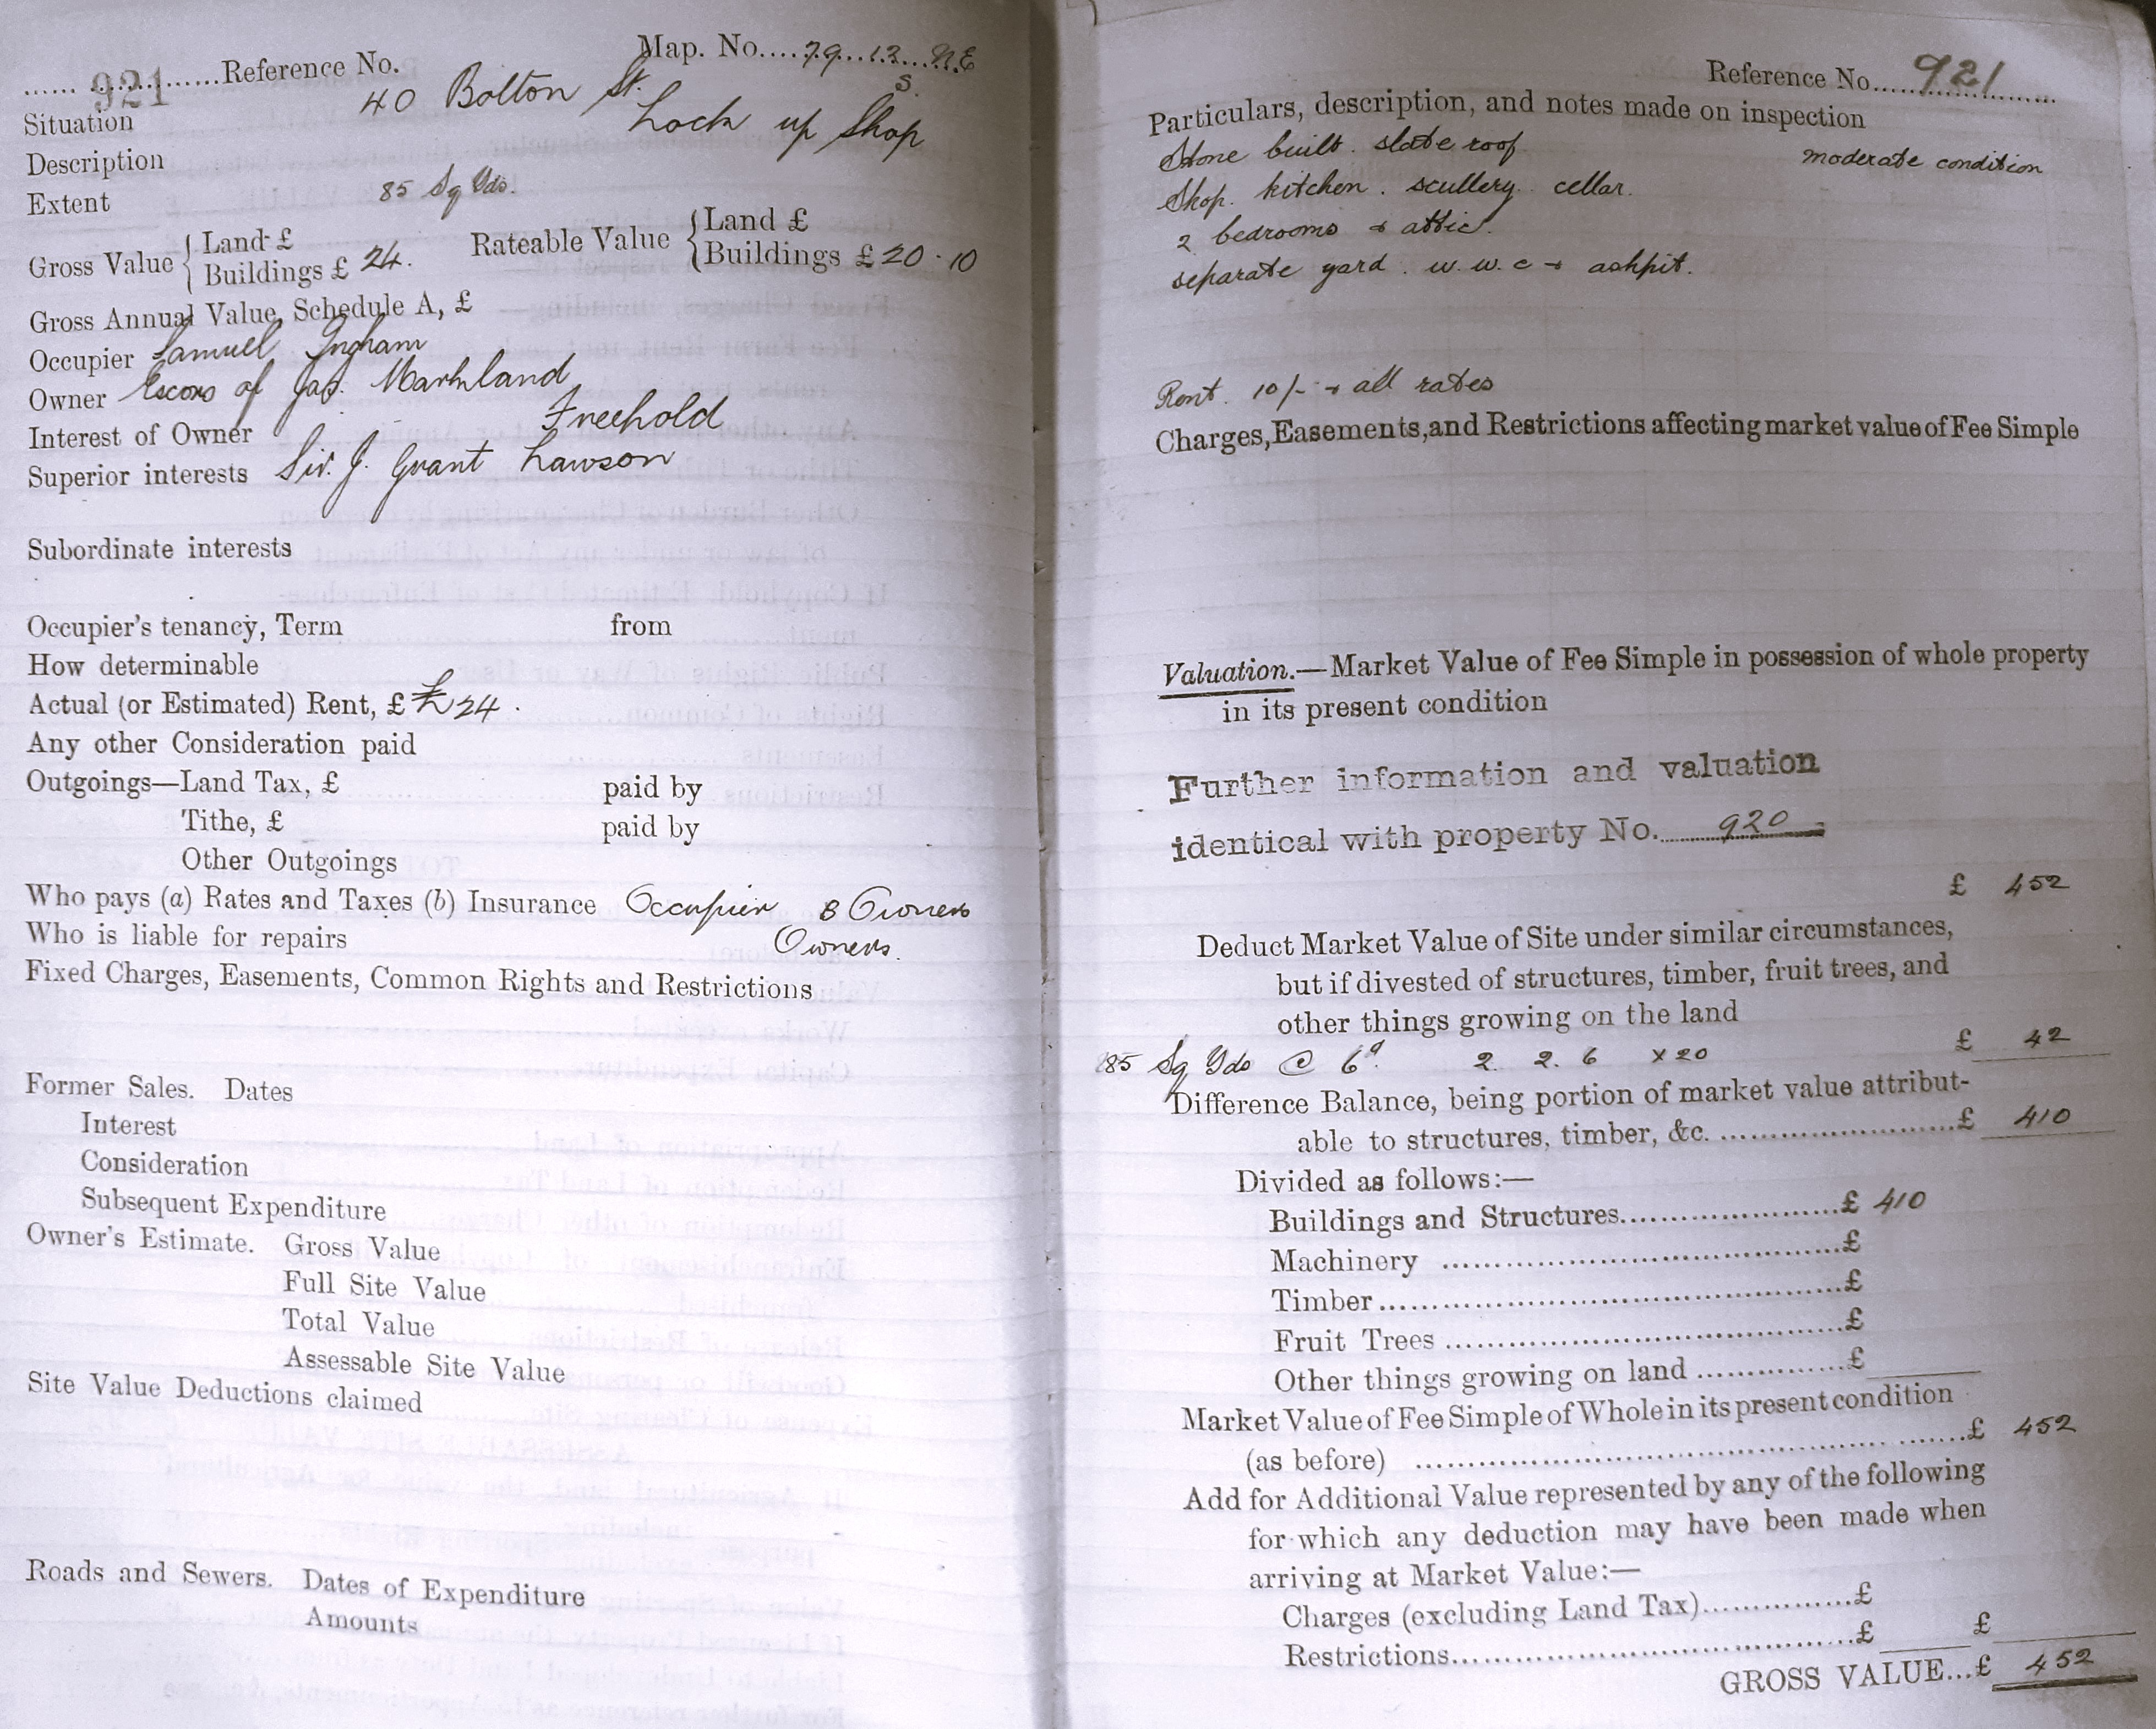 921 Reference No. Map. No. 79. 13. N.E
S.
Situation 40 Bolton St.
Description Lock up Shop
Extent 85 Sq Yds.
Gross Value { Land £ Rateable Value { Land £
Buildings £ 24. Buildings £ 20.10
Gross Annual Value, Schedule A, £
Occupier Samuel Ingham
Owner Excors of Jas. Markland
Interest of Owner Freehold
Superior interests Sir. J. Grant Lawson
Subordinate interests
Occupier's tenancy, Term from
How determinable
Actual (or Estimated) Rent, £ £24.
Any other Consideration paid
Outgoings—Land Tax, £ paid by
Tithe, £ paid by
Other Outgoings
Who pays (a) Rates and Taxes (b) Insurance Occupier B Owners
Who is liable for repairs Owners.
Fixed Charges, Easements, Common Rights and Restrictions
Former Sales. Dates
Interest
Consideration
Subsequent Expenditure
Owner's Estimate. Gross Value
Full Site Value
Total Value
Assessable Site Value
Site Value Deductions claimed
Roads and Sewers. Dates of Expenditure
Amounts
Reference No. 921
Particulars, description, and notes made on inspection
Stone built. slate roof. moderate condition
Shop. kitchen. scullery. cellar.
2 bedrooms + attic.
separate yard. w.w.c + ashpit.
Rent. 10/- + all rates
Charges, Easements, and Restrictions affecting market value of Fee Simple
Valuation.—Market Value of Fee Simple in possession of whole property
in its present condition
Further information and valuation
identical with property No. 920
£ 452
Deduct Market Value of Site under similar circumstances,
but if divested of structures, timber, fruit trees, and
other things growing on the land
85 Sq Yds @ 6d. 2. 2. 6 x 20 £ 42
Difference Balance, being portion of market value attribut-
able to structures, timber, &c. £ 410
Divided as follows:—
Buildings and Structures £ 410
Machinery £
Timber £
Fruit Trees £
Other things growing on land £
Market Value of Fee Simple of Whole in its present condition
(as before) £ 452
Add for Additional Value represented by any of the following
for which any deduction may have been made when
arriving at Market Value:—
Charges (excluding Land Tax) £
Restrictions £ £
GROSS VALUE...£ 452